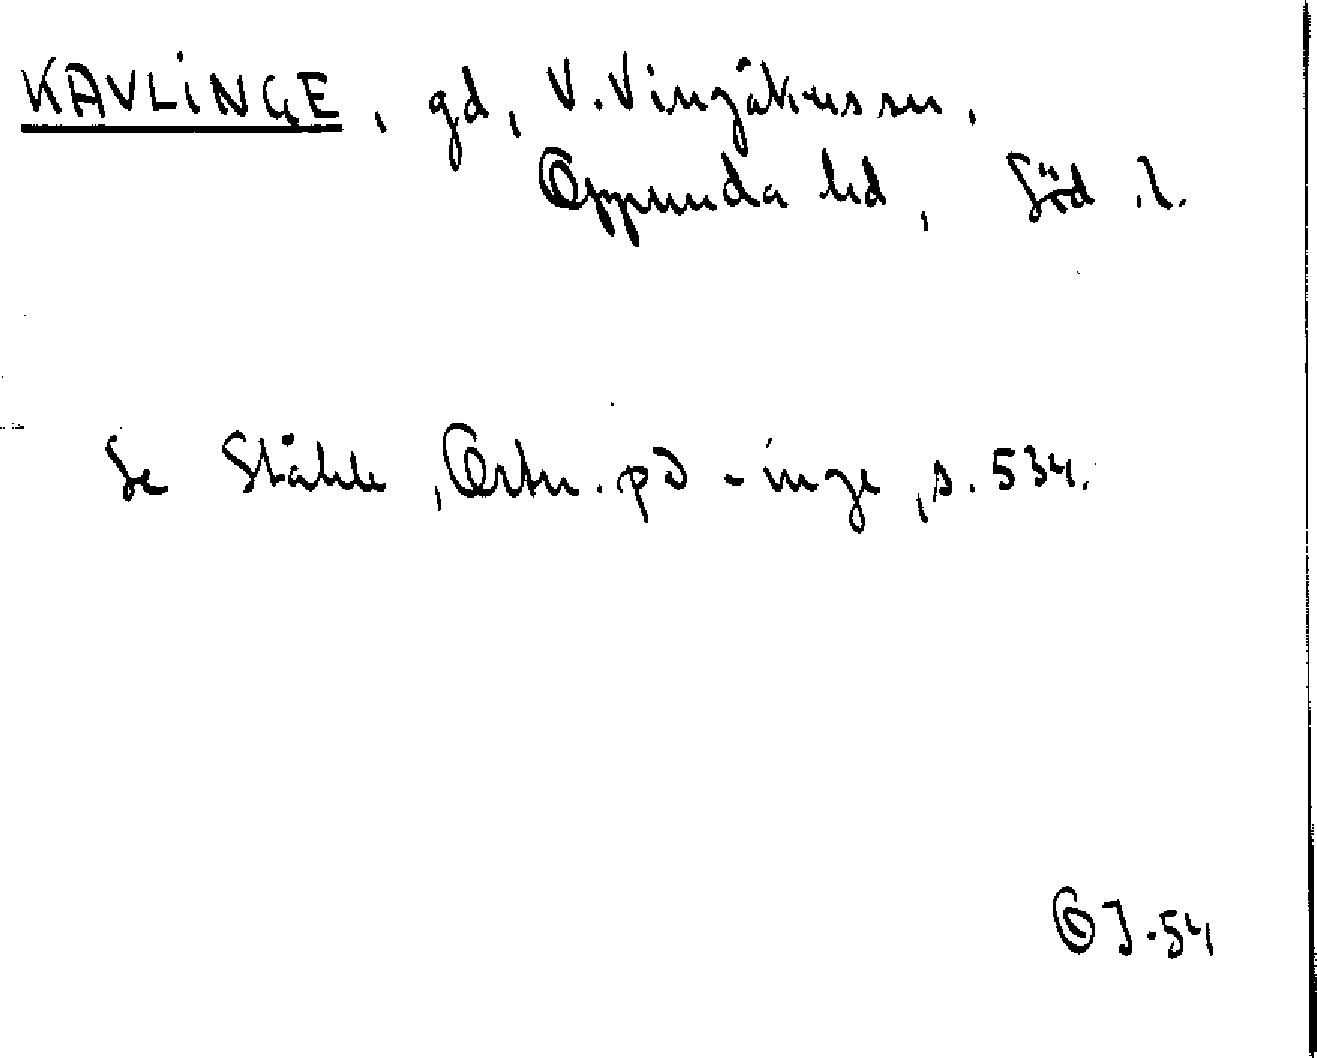 KAVLINGE, gd, V. Vingåkers sn,
Oppunda hd, Söd. l.
Se Ståhle, Ortn. på -inge, s. 534.
OJ.54